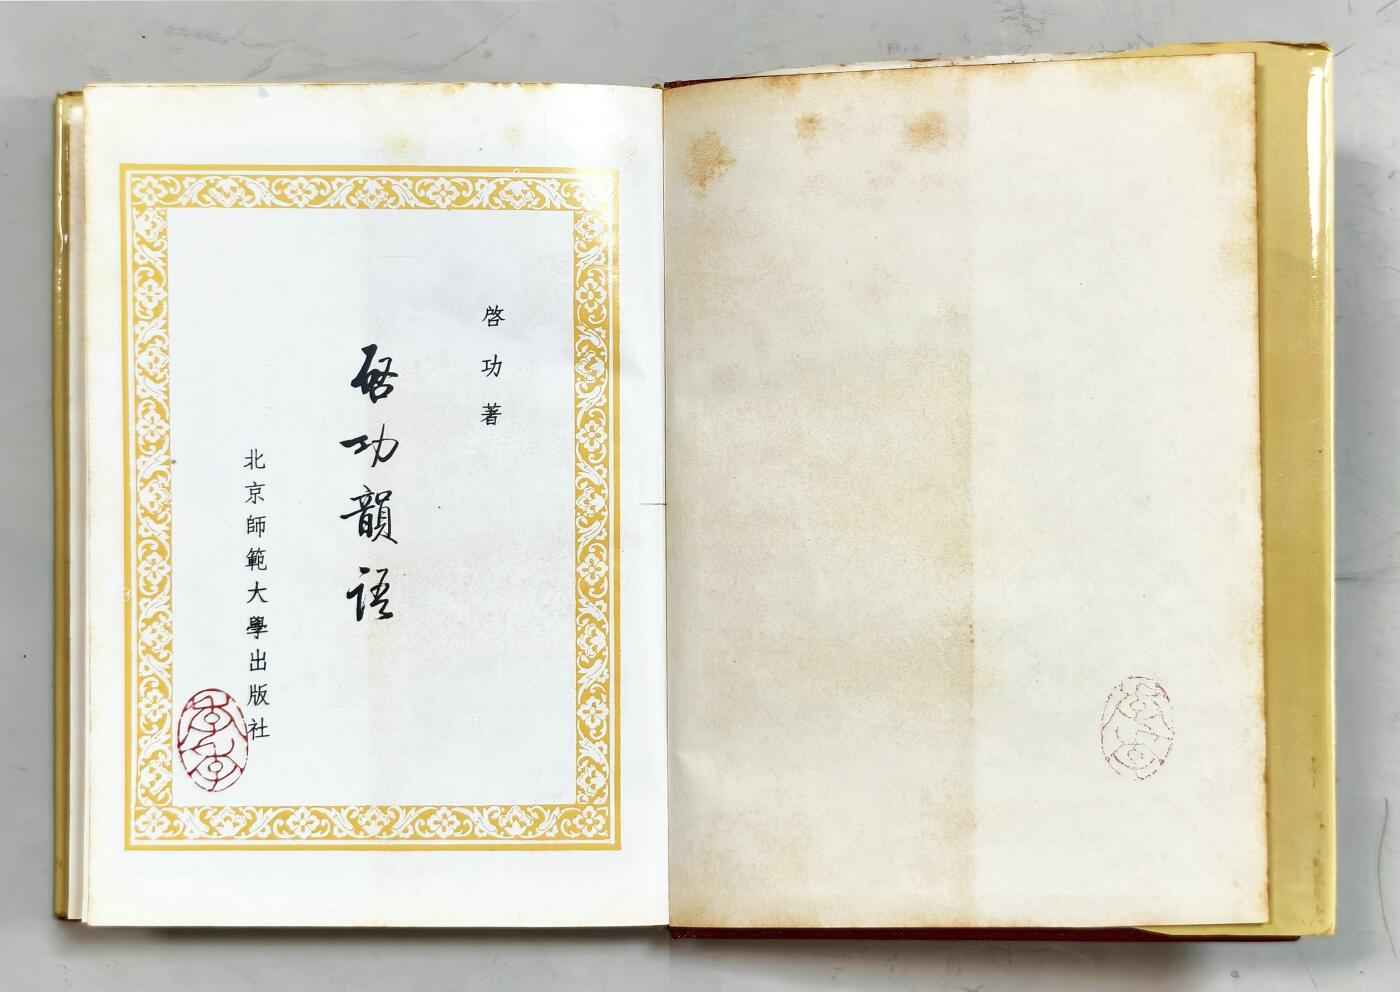 啓功著
啓功韻語
北京師範大學出版社